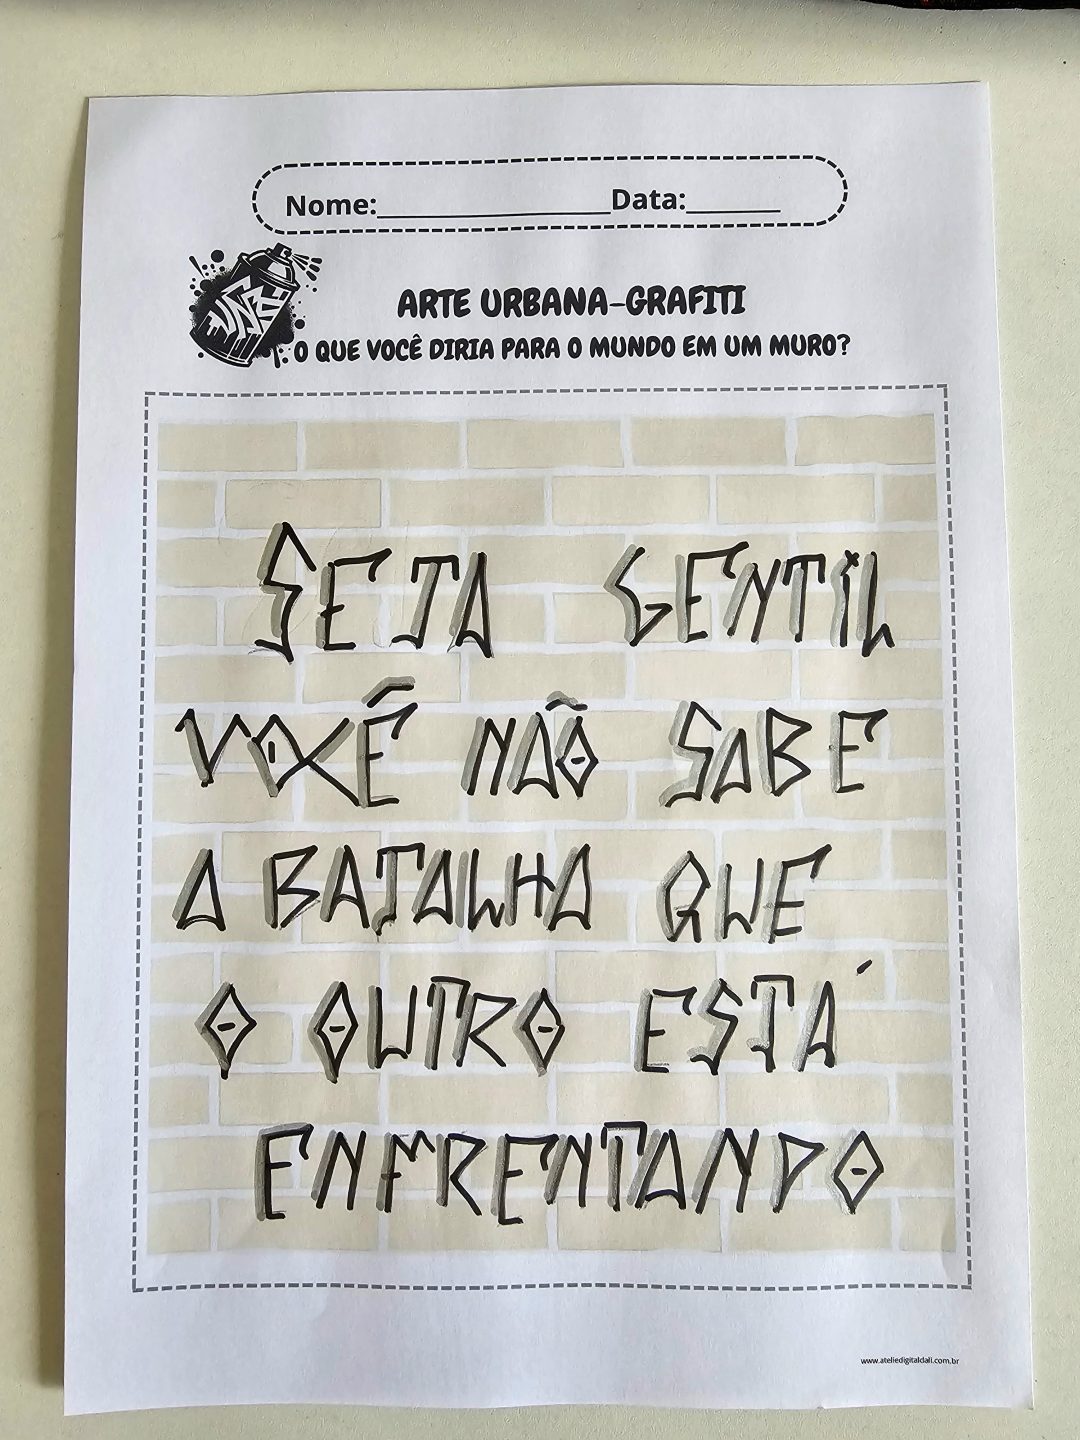 Nome:_________________Data:_______
ARTE URBANA-GRAFITI
O QUE VOCÊ DIRIA PARA O MUNDO EM UM MURO?
SEJA GENTIL
VOCÊ NÃO SABE
A BATALHA QUE
O OUTRO ESTÁ
ENFRENTANDO
www.ateliedigitaldali.com.br